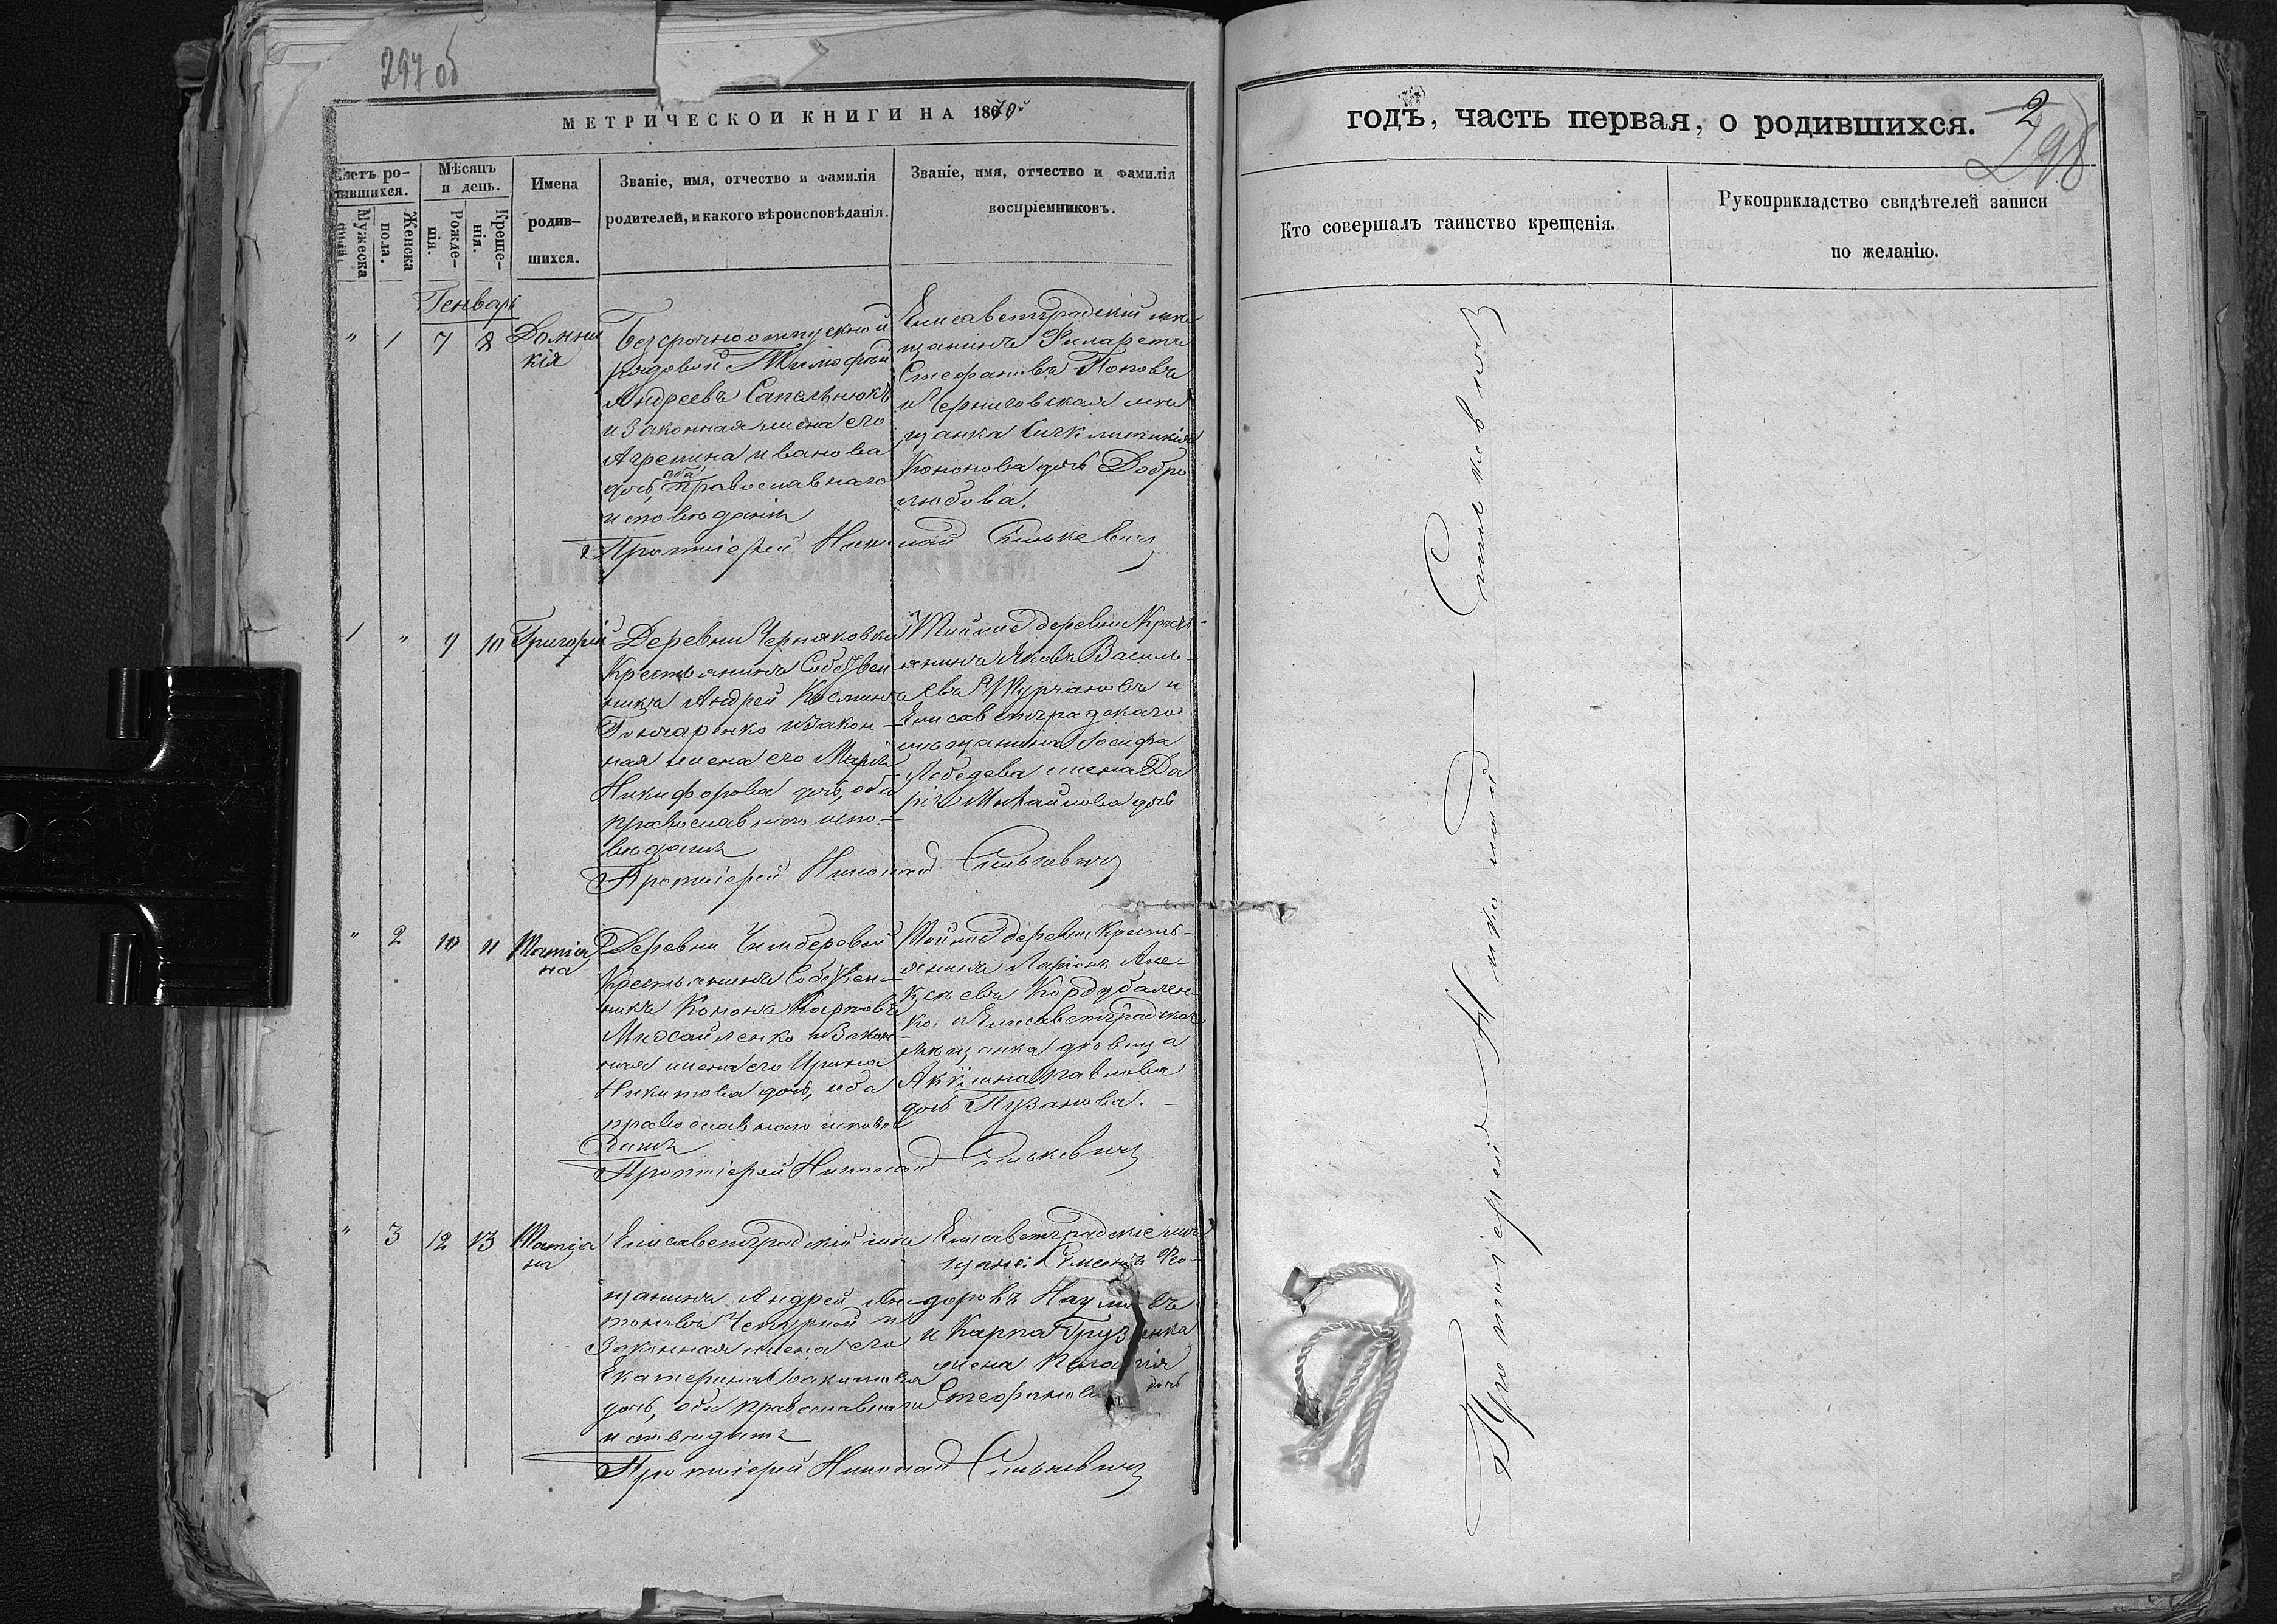 297 об
МЕТРИЧЕСКОЙ КНИГИ НА 1870й
Счетъ родившихся.
Мужеска пола.
Женска пола.
Мѣсяцъ и день.
Рожденія.
Крещенія.
Имена родившихся.
Званіе, имя, отчество и фамилія родителей, и какого вѣроисповѣданія.
Званіе, имя, отчество и фамилія воспріемниковъ.
Генварь
" 1 7 8 Домникія
Безсрочноотпускной
рядовой Тимофей
Андреевъ Сапельнюкъ
и законная жена его
Агрепина Иванова
дочь, оба православнаго
исповѣданія
Елисаветградскій мѣ
щанинъ Филаретъ
Стефановъ Поповъ
и Черниговская мѣ
щанка
Кононова дочь Добро
любова.
Протоіерей Николай Синькевичъ
1 " 9 10 Григорій
Деревни Черняховки
Крестьянинъ Собствен
никъ Андрей Косминъ
Гончаренко и закон-
ная жена его Марія
Никифорова дочь, оба
православнаго испо-
вѣданія
Той же деревни Кресть-
янинъ Яковъ Василь-
евъ Турчановъ и
Елисаветградскаго
мѣщанина Іосифа
Лебедева жена Да
рія Михайлова дочь
Протоіерей Николай Синькевичъ
" 2 10 11 Татіана
Деревни Чимберовой
Крестьянинъ Собствен-
никъ Кононъ Карповъ
Михайленко и закон-
ная жена его Ирина
Никитова дочь, оба
православнаго исповѣ
данія
Той же деревни Кресть-
янинъ Ларіонъ Але-
ксѣевъ Кордубален-
ко, и Елисаветградская
мѣщанка вдовица
Акулина Павлова
дочь Пузанова. -
Протоіерей Николай Синькевичъ
" 3 12 13 Татіана
Елисаветградскій мѣ
щанинъ Андрей Ан
тоновъ Чепурной и
Законная жена его
Екатерина Іоакимова
дочь, оба православнаго
исповѣданія
Елисаветградскіе мѣ
щане: Симеонъ Фео-
доровъ Наумовъ
и Карпа Грузенка
жена Пелагія
Стефанова дочь
Протоіерей Николай Синькевичъ
годъ, часть первая, о родившихся.
2
298
Кто совершалъ таинство крещенія.
Рукоприкладство свидѣтелей записи
по желанію.
Протоіерей Николай Синькевичъ